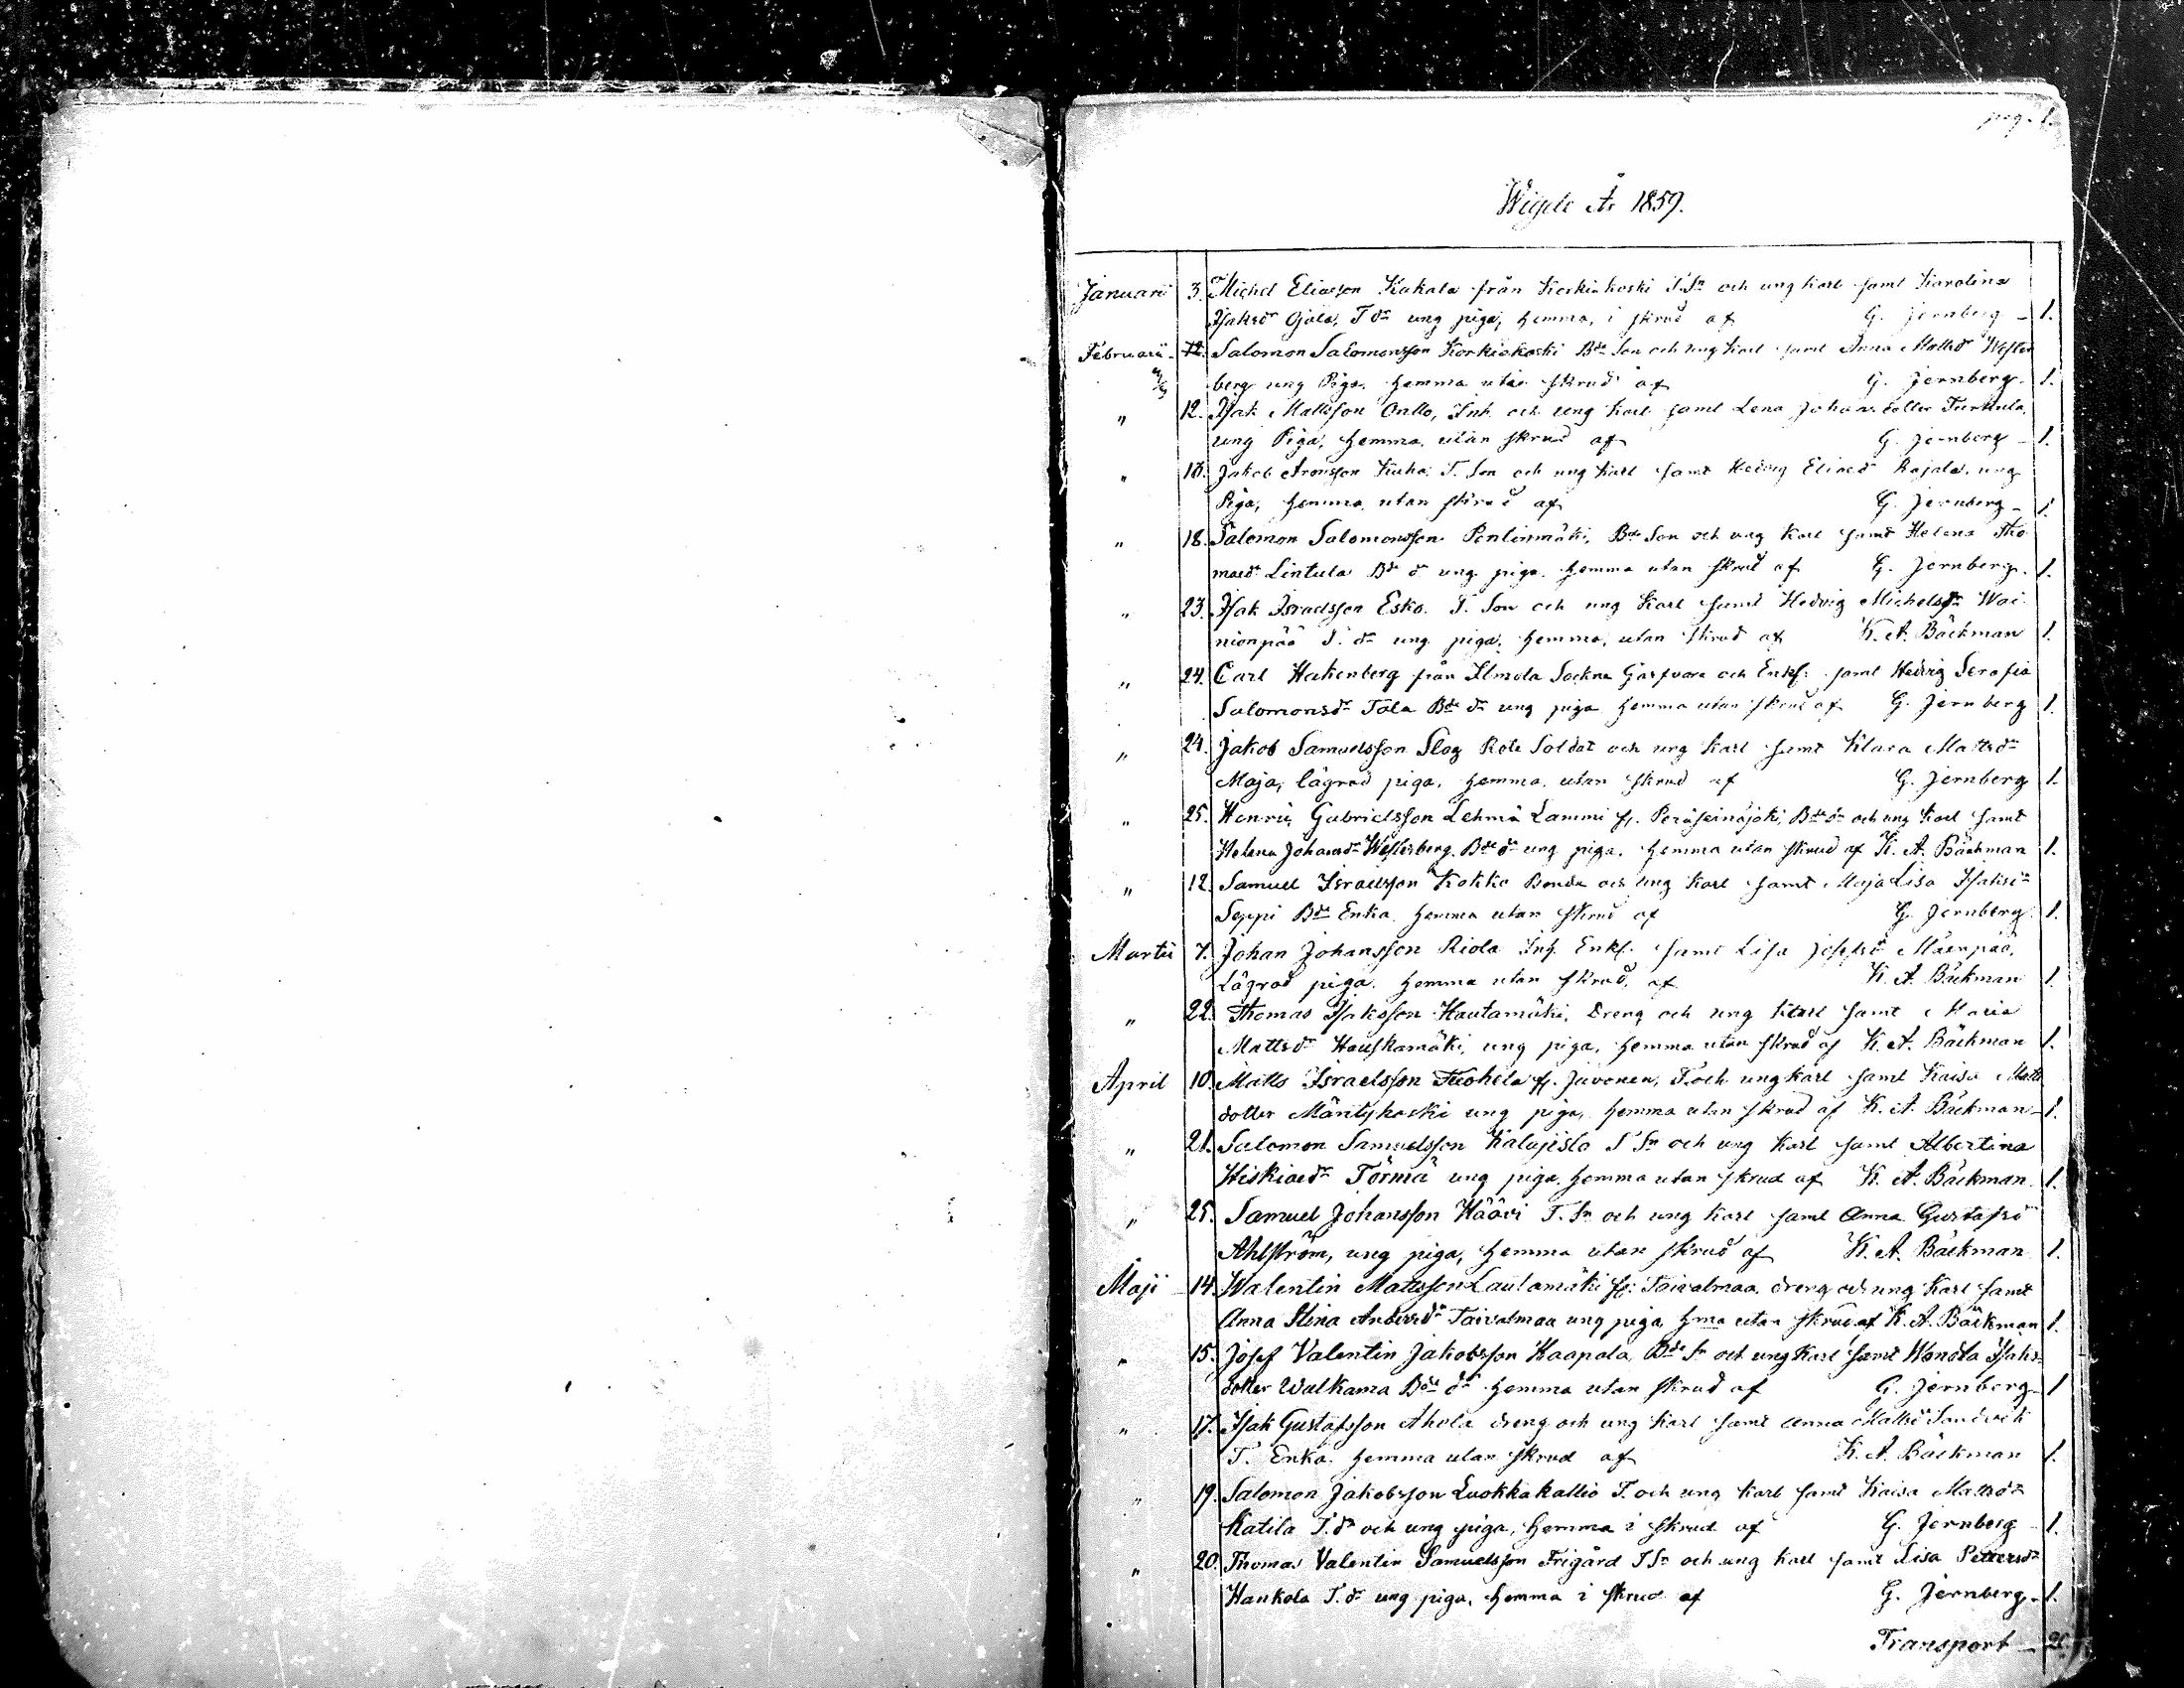 pag. 1.
Wigde År 1859.
Januarii 3. Michel Eliasson Kakala från Korkiakoski T. Sn och ung karl samt Karolina
Isaksdr Ojala, T. dr ung piga, hemma, i skrud af G. Jernberg 1.
Februarii 12. Salomon Salomonsson Korkiakoski Bde Son och ung karl samt Anna Mattsdr Wester
berg ung Piga. hemma utan skrud af G. Jernberg. 1.
" 12. Isak Mattsson Inh. och ung karl samt Lena Johansdotter Turkula,
ung Piga, hemma, utan skrud af G. Jernberg 1.
" 18. Jakob Aronsson Kuha T. Son och ung karl samt Hedvig Eliaedr Rajala, ung
Piga, hemma, utan skrud af G. Jernberg 1.
" 18. Salomon Salomonsson Penlinmäki, Bde Son och ung Karl samt Helena Tho
maedr Lintula Bde dr ung piga. hemma utan skrud af G. Jernberg. 1.
" 23. Isak Israelsson Esko. T. Son och ung Karl samt Hedvig Michelsdr Wai
nionpää T. dr ung piga, hemma, utan skrud af K. A. Bäckman 1.
" 24. Carl Hakenberg från Ilmola Sockne Garfvare och Enkl. samt Hedvig Serafia
Salomonsdr Tala Bde dr ung piga hemma utan skrud af G. Jernberg 1.
" 24. Jakob Samuelsson Slog Rote Soldat och ung karl samt Klara Mattsdr
Maja, lägrad piga, hemma, utan skrud af G. Jernberg 1.
" 25. Henric Gabrielsson Lehmä Lammi fr. Peräseinäjoki, och ung karl samt
Helena Johansdr Westerberg. Bde dr ung piga. hemma utan skrud af K. A. Bäckman 1.
" 12. Samuel Israelsson Kokko Bonde och ung karl samt Maja Lisa Isaksdr
Seppi Bde Enka hemma utan skrud af G. Jernberg 1.
Martii 7. Johan Johansson Riola Inh. Enkl. samt Lisa Mäenpää,
Lägrad piga. hemma utan skrud, af K. A. Bäckman 1.
" 22. Thomas Isaksson Hautamäki, Dreng och ung Karl samt Maria
Mattsdr Hauskamäki, ung piga, hemma utan skrud af K. A. Bäckman 1.
April 10. Matts Israelsson Tuohela fr. Juvonen, T. och ung karl samt Kaisa Matts
dotter Mäntykoski ung piga, hemma utan skrud af K. A. Bäckman 1.
" 21. Salomon Samuelsson Kalajisto T Sn och ung Karl samt Albertina
Hiskiaedr Törmä ung piga. hemma utan skrud af K. A. Bäckman. 1.
" 25. Samuel Johansson Wääri T. Sn och ung karl samt Anna Gustafsd
Ahlström, ung piga, hemma utan skrud af K. A. Bäckman 1.
Maji 14. Walentin Mattsson Lautamäki fr. Taivalmaa, dreng och ung Karl samt
Anna Stina Andersdr Taivalmaa ung piga hma utan skrud af K. A. Bäckman 1.
" 15. Josef Valentin Jakobsson Haapala, Bde Sn och ung Karl samt Wendla Isaks
dotter Walkama Bde dr hemma utan skrud af G. Jernberg 1
" 17. Isak Gustafsson Ahola dreng och ung karl samt Anna Mattsd Sandvik
T. Enka. hemma utan skrud af K. A. Bäckman 1.
" 19. Salomon Jakobsson Luokkakallio T. och ung karl samt Kaisa Mattsdr
Katila T. dr och ung piga, hemma i skrud af G. Jernberg 1.
" 20. Thomas Valentin Samuelsson Frigård T Sn och ung karl samt Lisa Pettersdr
Hankola T. dr ung piga, hemma i skrud af G. Jernberg 1.
Transport 20.